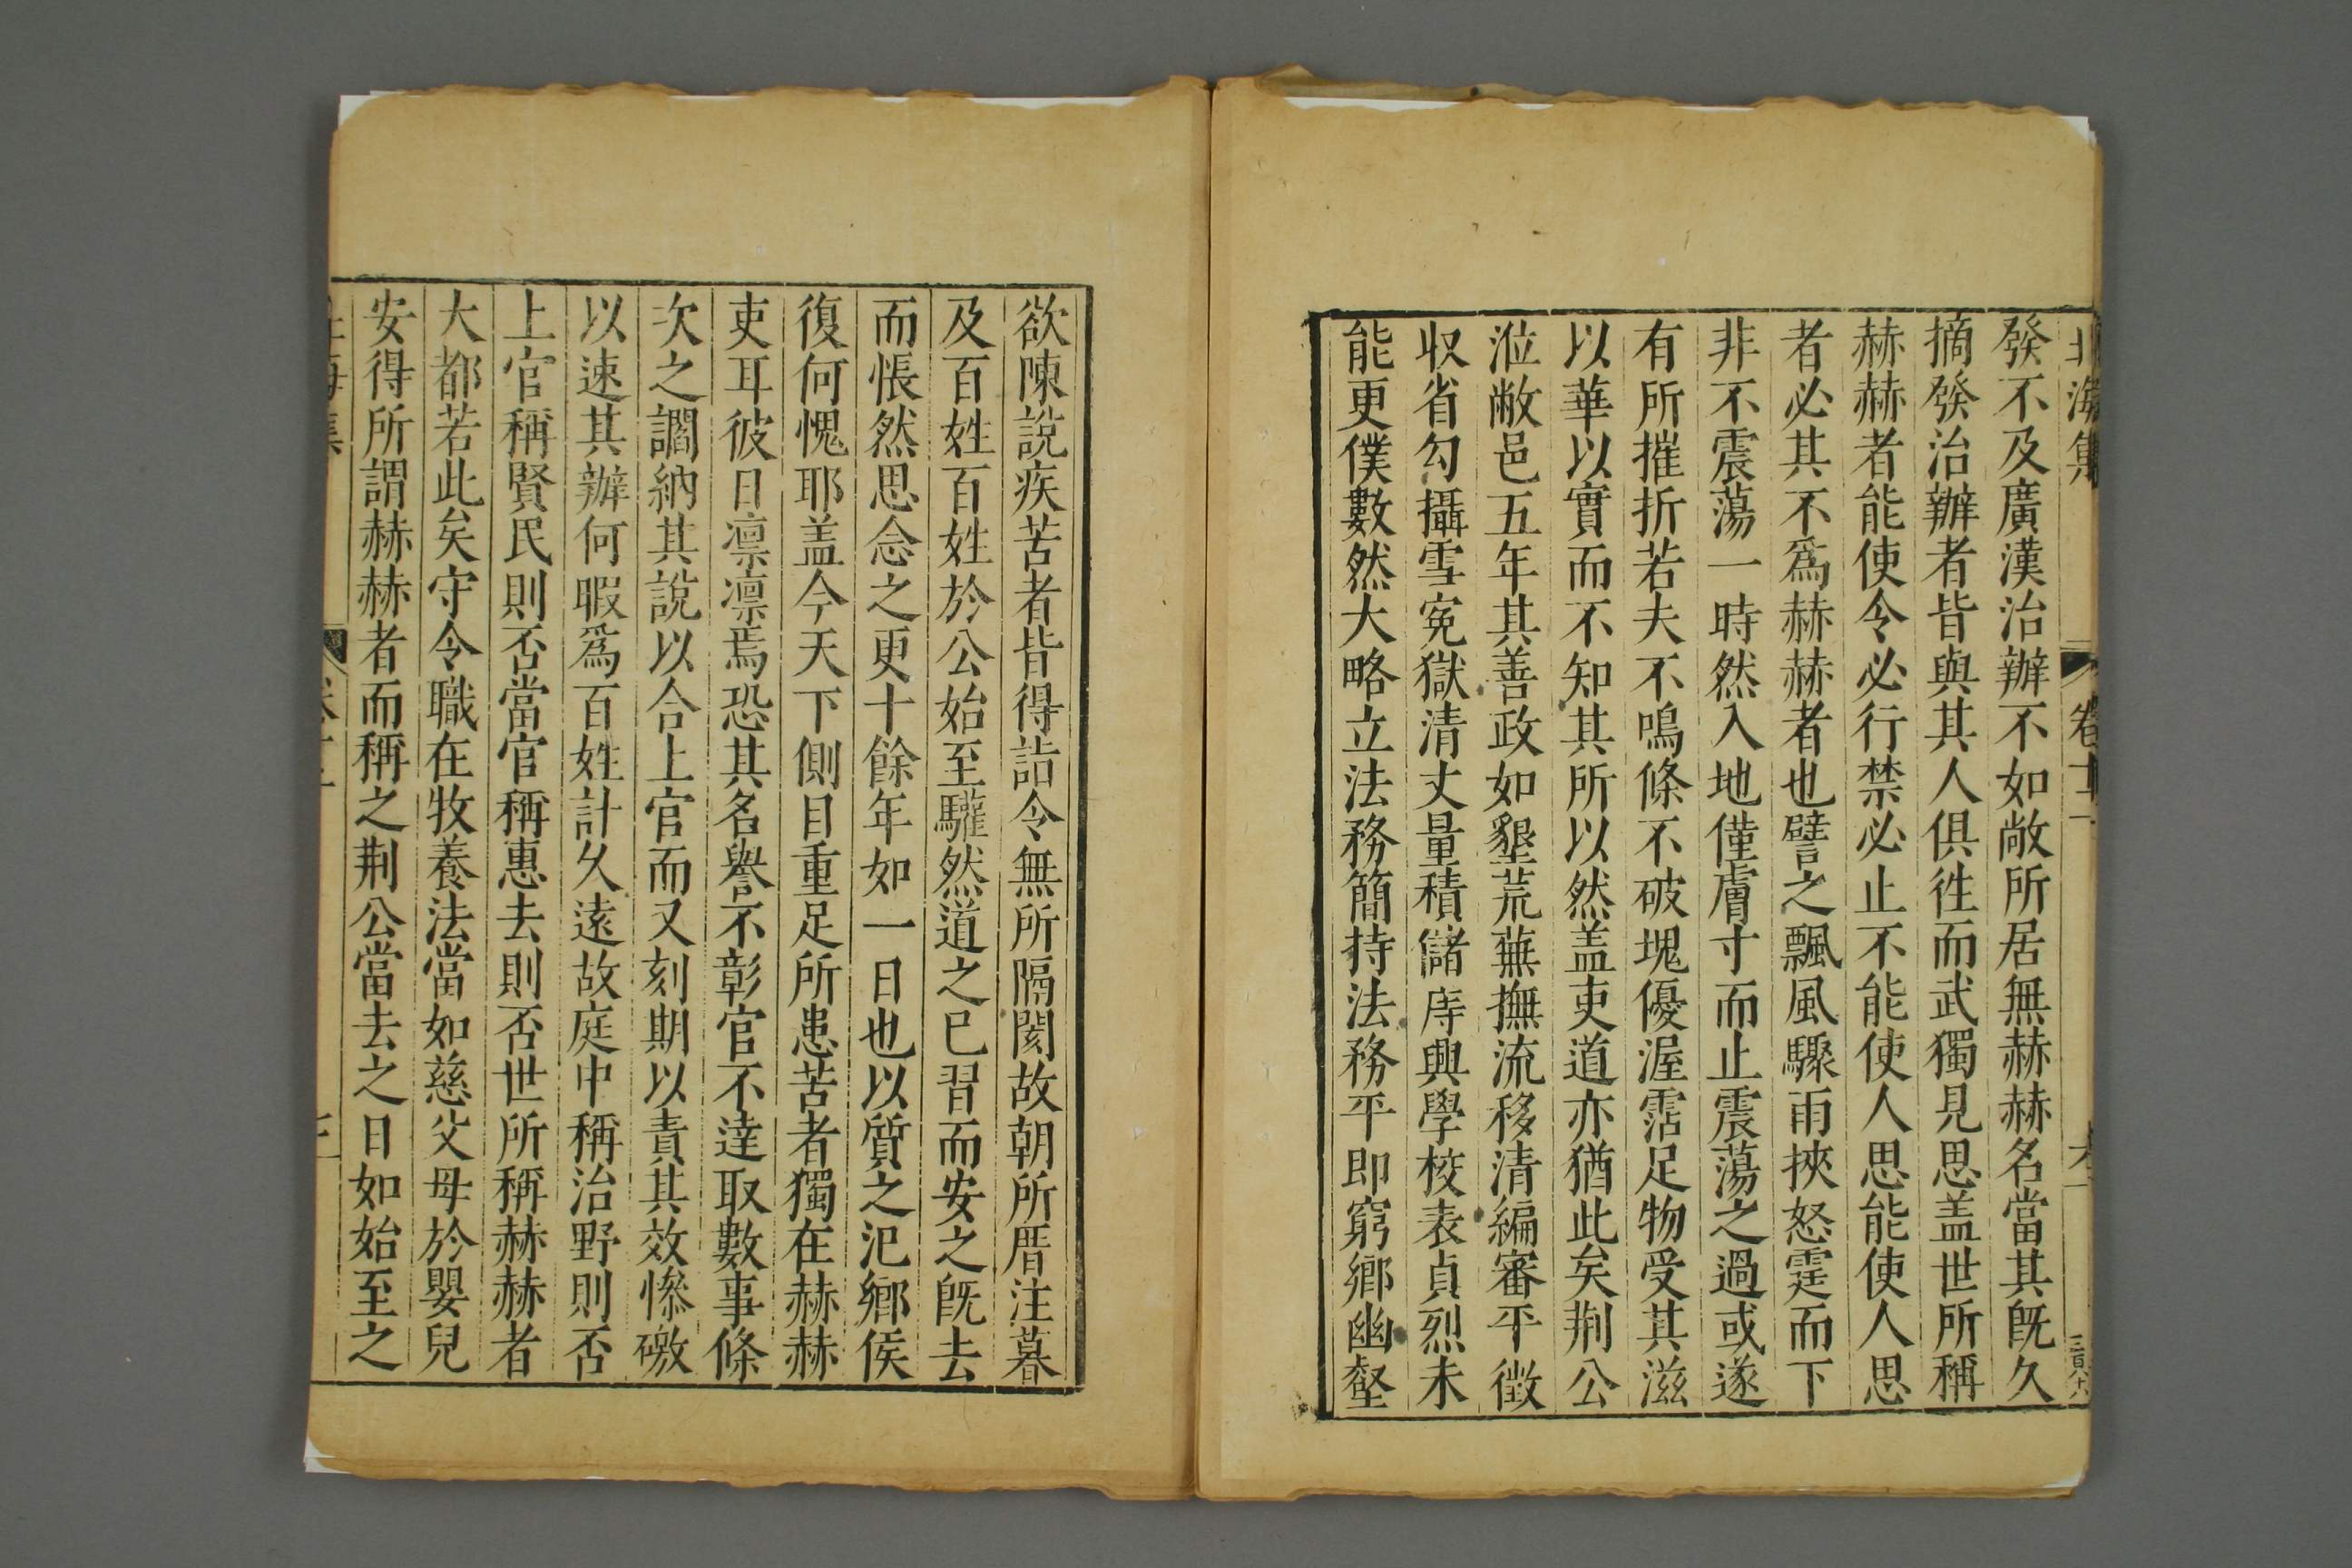 北海集
卷十一
三百八十八
發不及廣漢治辦不如敞所居無赫赫名當其旣久
摘發治辦者皆與其人俱徃而武獨見思盖世所稱
赫赫者能使令必行禁必止不能使人思能使人思
者必其不爲赫赫者也譬之飄風驟雨挾怒霆而下
非不震蕩一時然入地僅膚寸而止震蕩之過或遂
有所摧折若夫不鳴條不破塊優渥霑足物受其滋
以華以實而不知其所以然盖吏道亦猶此矣荆公
涖敝邑五年其善政如墾荒蕪撫流移清編審平徵
収省勾攝雪寃獄清丈量積儲庤興學校表貞烈未
能更僕數然大略立法務簡持法務平即窮鄉幽壑
欲陳說疾苦者皆得詣令無所隔閡故朝所厝注暮
及百姓百姓於公始至驩然道之已習而安之旣去
而悵然思念之更十餘年如一日也以質之氾鄉侯
復何愧耶盖今天下側目重足所患苦者獨在赫赫
吏耳彼日凛凛焉恐其名譽不彰官不達取數事條
次之讕納其說以合上官而又刻期以責其效慘礉
以速其辦何暇爲百姓計久遠故庭中稱治野則否
上官稱賢民則否當官稱惠去則否世所稱赫赫者
大都若此矣守令職在牧養法當如慈父母於嬰兒
安得所謂赫赫者而稱之荆公當去之日如始至之